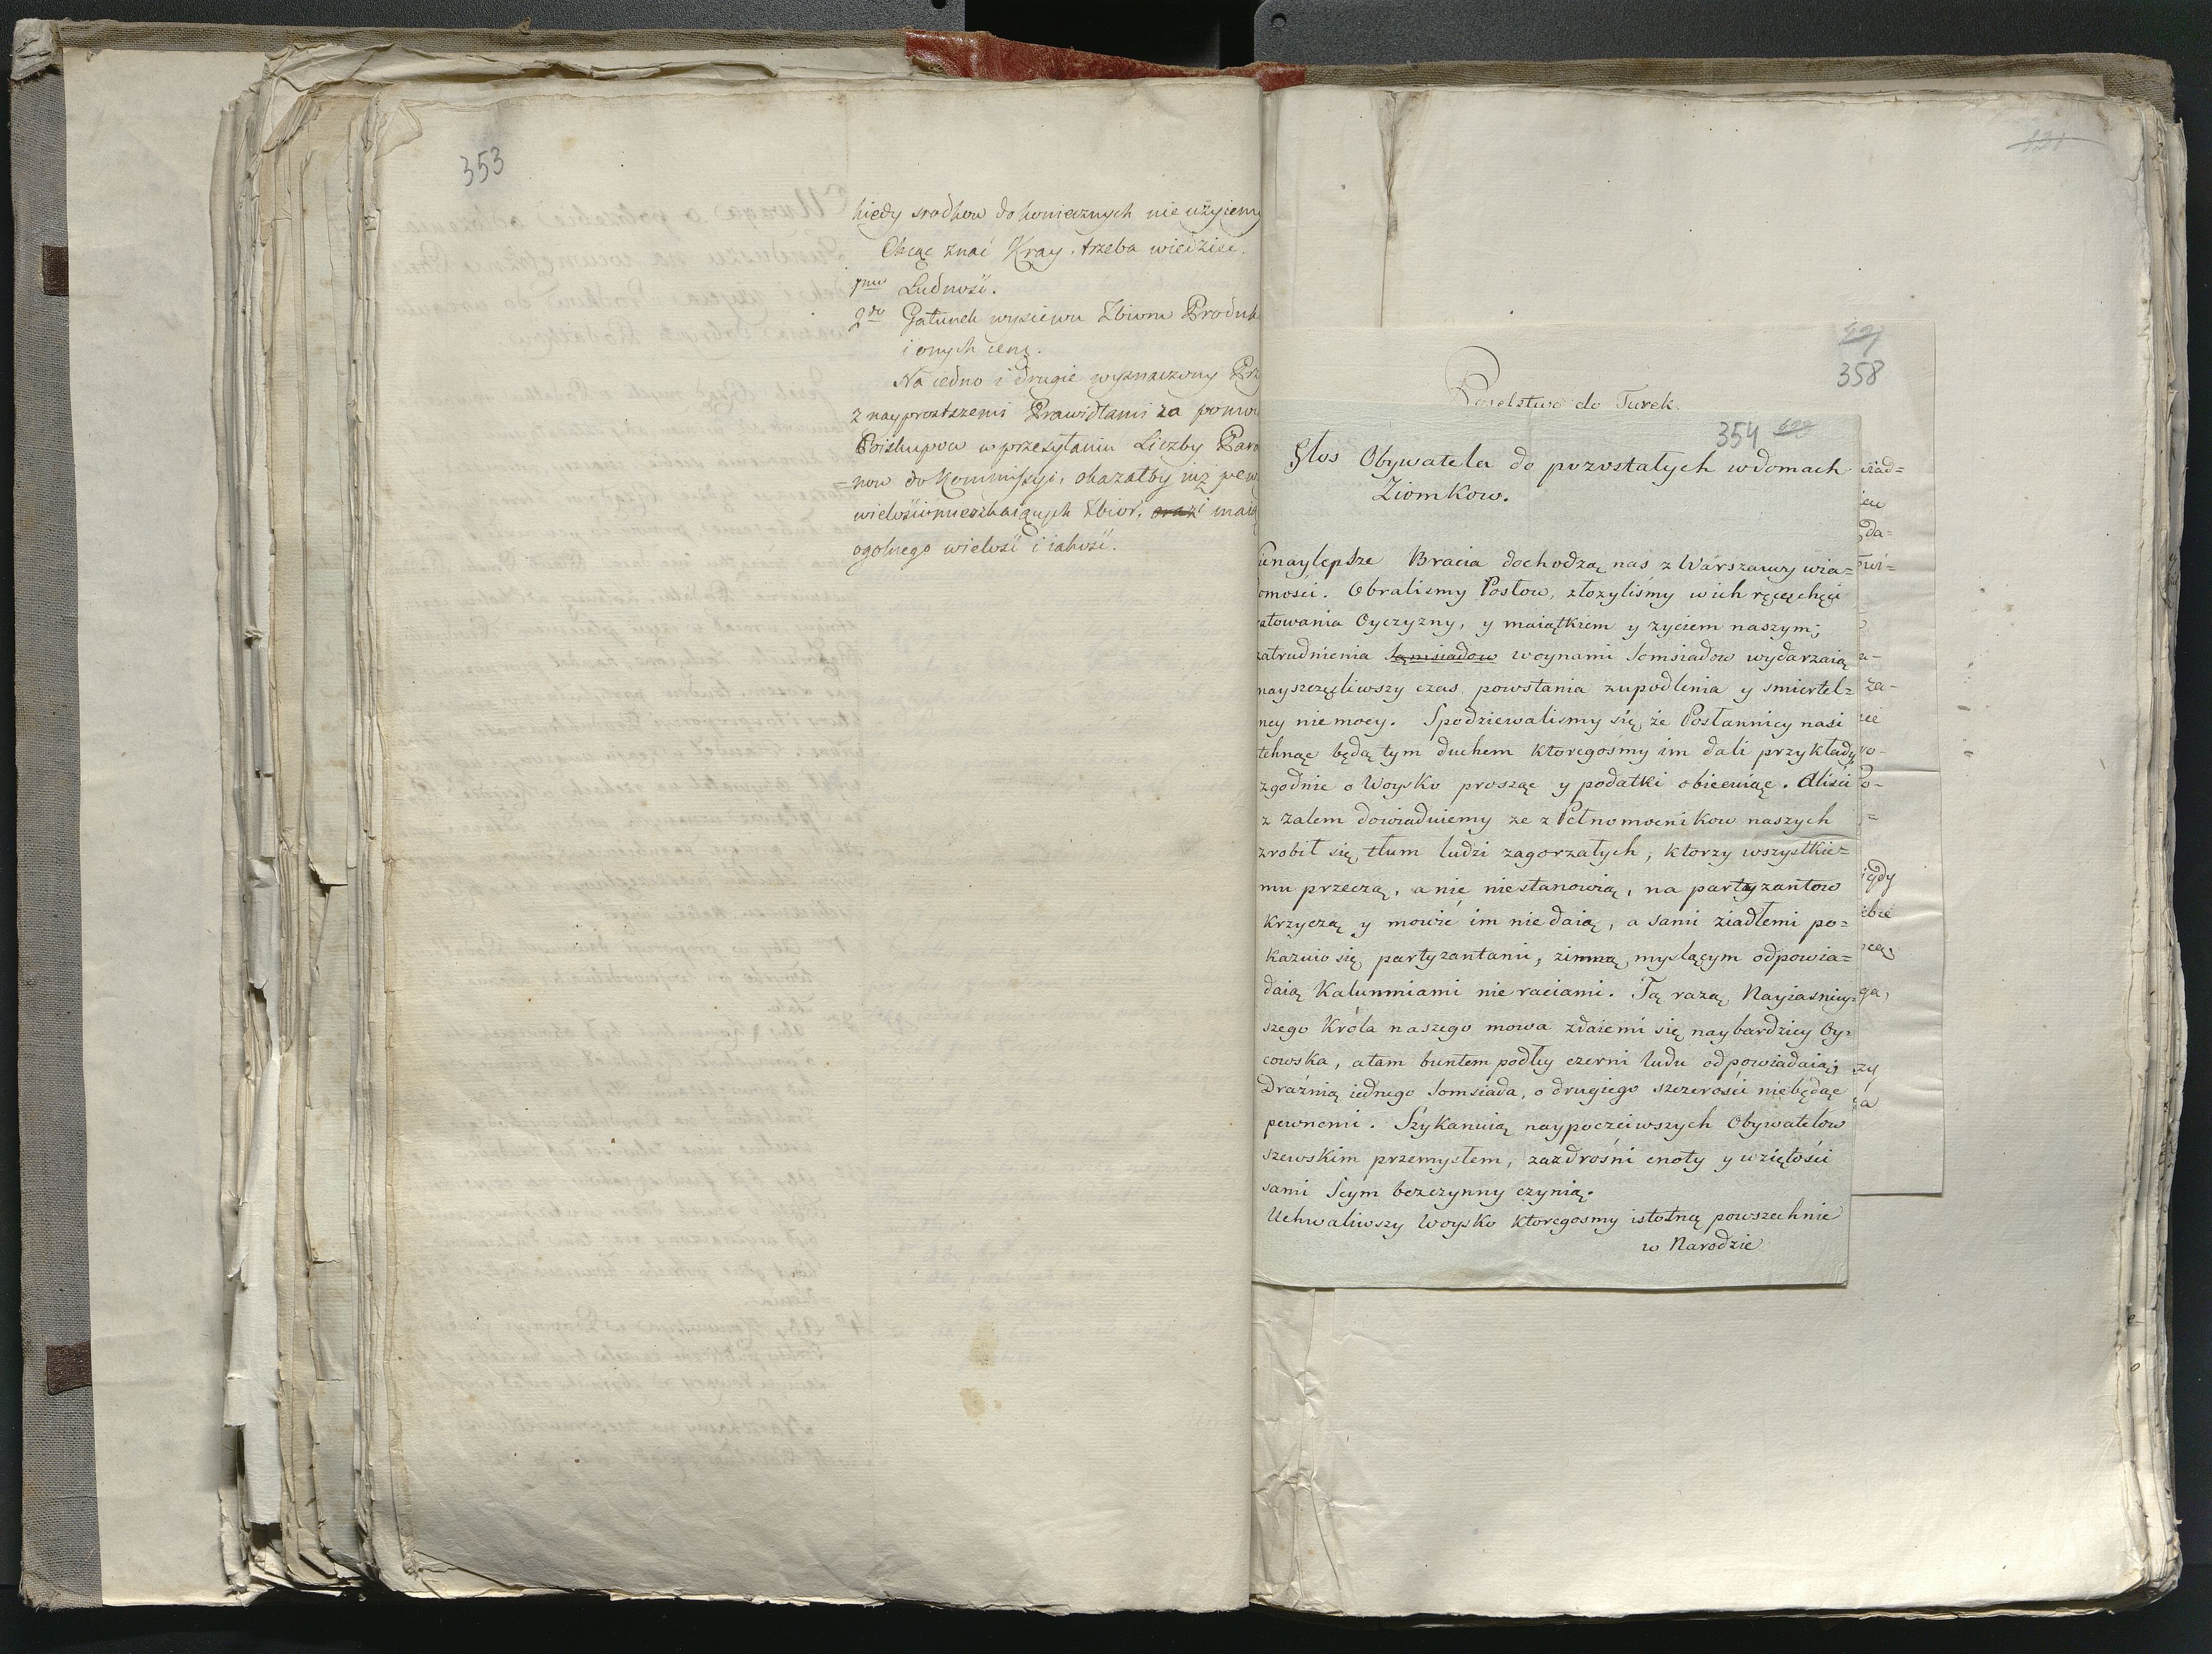 353
kiedy srodkow do koniecznych nie użyiemy
Chcąc znać Kray, trzeba wiedzieć.
1mo Ludność.
2do Gatunek wysiewu Zbioru Produk
i onych cenę.
Na iedno i drugie wyznaczony Prz
z nayprostszemi Prawidłami za pomo
Biskupow w przesyłaniu Liczby Para
=now do Kommissyi, okazałby iuż pew
wielości mieszkaiących Zbior, oraz i maią
ogolnego wielość i iakość.
121
421
358
Poselstwo do Turek.
354 423
Głos Obywatela do pozostałych w domach
Ziomkow.
ienaylepsze Bracia dochodzą nas z Warszawy wia=
omości. Obralismy Posłow, złożyliśmy w ich ręce chęci
atowania Oyczyzny, y maiątkiem y zyciem naszym;
zatrudnienia Sąmsiadow woynami Somsiadow wydarzaią
nayszczęśliwszy czas powstania z upodlenia y smiertel=
ney niemocy. Spodziewalismy się, że Posłannicy nasi
tchnąc będą tym duchem ktoregośmy im dali przykłady
zgodnie o Woysko prosząc y podatki obiecuiąc. Aliści
z żalem dowiaduiemy ze z Pełnomocnikow naszych
zrobił się tłum ludzi zagorzałych, ktorzy wszystkie=
mu przeczą, a nic niestanowią, na partyzantow
krzyczą y mowić im nie daią, a sami ziadłemi po=
kazuio się partyzantami, zimną myslącym odpowia=
daią Kalumniami nie raciami. Tą razą Nayiasniey=
szego Króla naszego mowa zdaiemi się naybardziey Oy=
cowska, a tam buntem podłey czerni ludu odpowiadaią;
Draźnią iednego Somsiada, o drugiego szczerości niebędąc
pewnemi. Szykanuią naypoczciwszych Obywatelow
szewskim przemysłem, zazdrośni cnoty y wziętości
sami Seym bezczynny czynią.
Uchwaliwszy Woysko ktoregosmy istotną powszechnie
w Narodzie